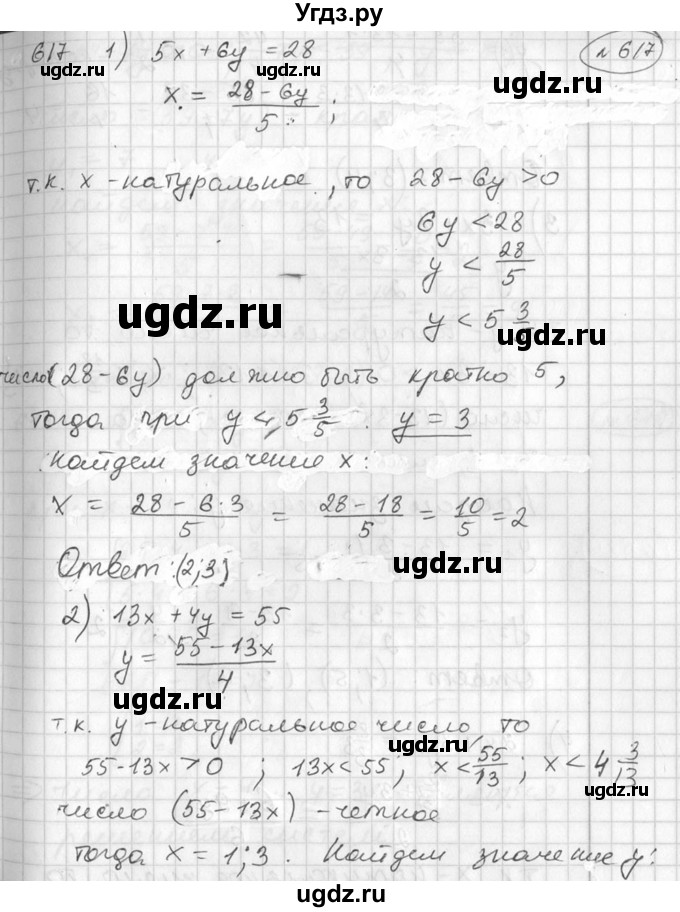 Угдз.ру
617 1) 5x + 6y = 28
№ 617
ugdz.ru ugdz.ru
x = (28 - 6y)/5 ;
ugdz.ru
т.к. x - натуральное, то 28 - 6y > 0
6y < 28
ugdz.ru
y < 28/5
ugdz.ru
ugdz.ru
y < 5 3/
число (28 - 6y) должно быть кратно 5,
тогда при y < 5 3/5 . y = 3
ugdz.ru ugdz.ru
найдем значение x:
x = (28 - 6·3)/5 = (28 - 18)/5 = 10/5 = 2
ugdz.ru
Ответ: (2;3)
ugdz.ru
2) 13x + 4y = 55
y = (55 - 13x)/4
ugdz.ru
ugdz.ru
т.к. y - натуральное число, то
ugdz.ru
55 - 13x > 0 ; 13x < 55 ; x < 55/13 ; x < 4 3/13
ugdz.ru
число (55 - 13x) - четное
тогда x = 1; 3. Найдем значение y:
ugdz.ru ugdz.ru